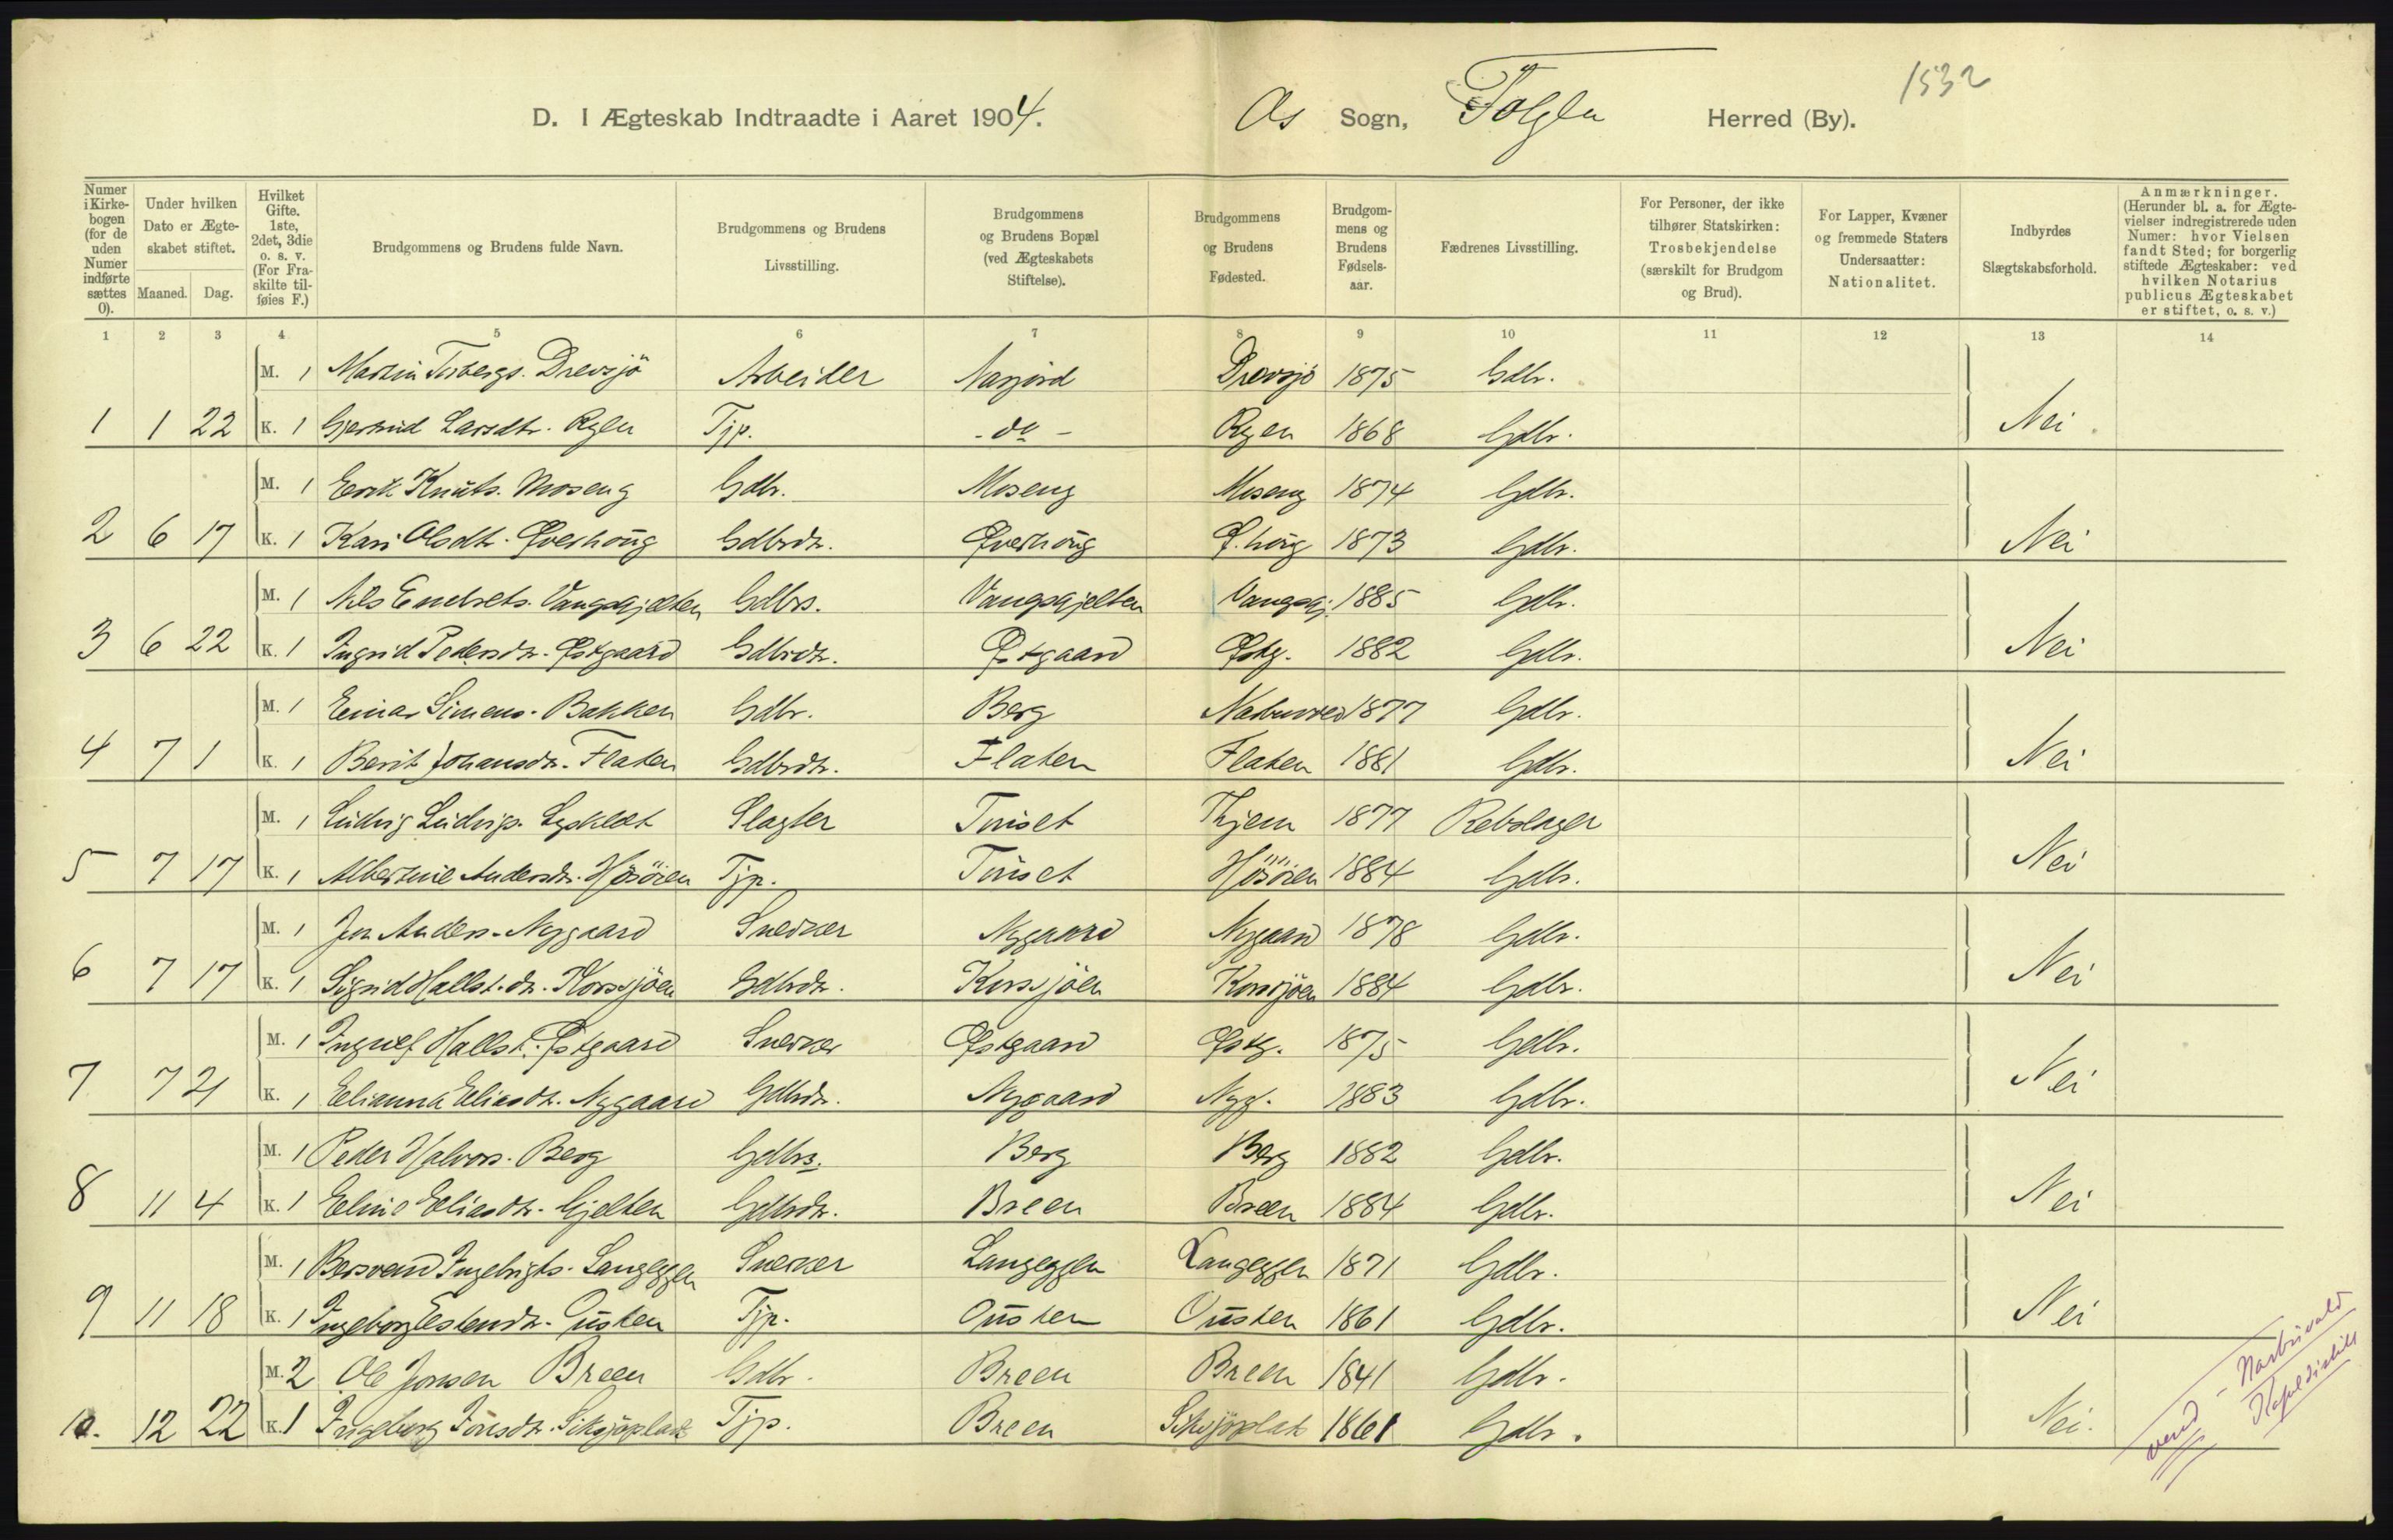 1532
D. I Ægteskab Indtraadte i Aaret 1904. Os Sogn, Tolgen Herred (By).
Numer i Kirkebogen (for de uden Numer indførte sættes 0). Under hvilken Dato er Ægteskabet stiftet. Maaned. Dag. Hvilket Gifte. 1ste, 2det, 3die o. s. v. (For Fraskilte tilføies F.) Brudgommens og Brudens fulde Navn. Brudgommens og Brudens Livsstilling. Brudgommens og Brudens Bopæl (ved Ægteskabets Stiftelse). Brudgommens og Brudens Fødested. Brudgommens og Brudens Fødselsaar. Fædrenes Livsstilling. For Personer, der ikke tilhører Statskirken: Trosbekjendelse (særskilt for Brudgom og Brud). For Lapper, Kvæner og fremmede Staters Undersaatter: Nationalitet. Indbyrdes Slægtskabsforhold. Anmærkninger. (Herunder bl. a. for Ægtevielser indregistrerede uden Numer: hvor Vielsen fandt Sted; for borgerlig stiftede Ægteskaber: ved hvilken Notarius publicus Ægteskabet er stiftet, o. s. v.)
1 2 3 4 5 6 7 8 9 10 11 12 13 14
M. 1 Martin Torbergs. Drevsjö Arbeider Narjord Drevsjö 1875 Gdbr.
1 1 22 K. 1 Gjertrud Larsdtr. Ryen Tjp. - do - Ryen 1868 Gdbr. Nei.
M. 1 Erik Knuts. Moseng Gdbr. Moseng Moseng 1874 Gdbr.
2 6 17 K. 1 Kari Olsdtr. Øverhoug Gdbrdtr. Øverhoug Ø.houg 1873 Gdbr. Nei
M. 1 Nils Endrets. Vangskjelten Gdbrs. Vangskjelten Vangskj. 1885 Gdbr.
3 6 22 K. 1 Ingrid Pedersdtr. Østgaard Gdbrdtr. Østgaard Østg. 1882 Gdbr. Nei
M. 1 Einar Simens. Bakken Gdbr. Berg 1877 Gdbr.
4 7 1 K. 1 Berit Johansdtr. Flaten Gdbrdtr. Flaten Flaten 1881 Gdbr. Nei
M. 1 Ludvig Ludvigs. Lysklæt Slagter Tønset Thjem 1877 Rebslager
5 7 17 K. 1 Albertine Andersdtr. Hösöien Tjp. Tønset Hösöien 1884 Gdbr. Nei
M. 1 Jon Anders. Nygaard Snedker Nygaard Nygaard 1878 Gdbr.
6 7 17 K. 1 Sigrid Hallst.dtr. Korssjöen Gdbrdtr. Korssjöen Korssjöen 1884 Gdbr. Nei
M. 1 Ingulf Hallst. Østgaard Snedker Østgaard Østg. 1875 Gdbr.
7 7 21 K. 1 Elianna Eliasdtr. Nygaard Gdbrdtr. Nygaard Nyg. 1883 Gdbr. Nei
M. 1 Peder Halvors. Berg Gdbrs. Berg Berg 1882 Gdbr.
8 11 4 K. 1 Eline Eliasdtr. Gjelten Gdbrdtr. Breen Breen 1884 Gdbr. Nei
M. 1 Bersvend Ingebrigts. Langeggen Snedker Langeggen Langeggen 1871 Gdbr.
9 11 18 K. 1 Ingeborg Estensdtr. Ousten Tjp. Ousten Ousten 1861 Gdbr. Nei
M. 2 Ole Jonsen Breen Gdbr. Breen Breen 1841 Gdbr.
10. 12 22 K. 1 Ingeborg Jonsdtr. Siksjöplads Tjp. Breen Siksjöplads 1861 Gdbr. Nei.
vend - Narbuvold
Kapeldistrikt